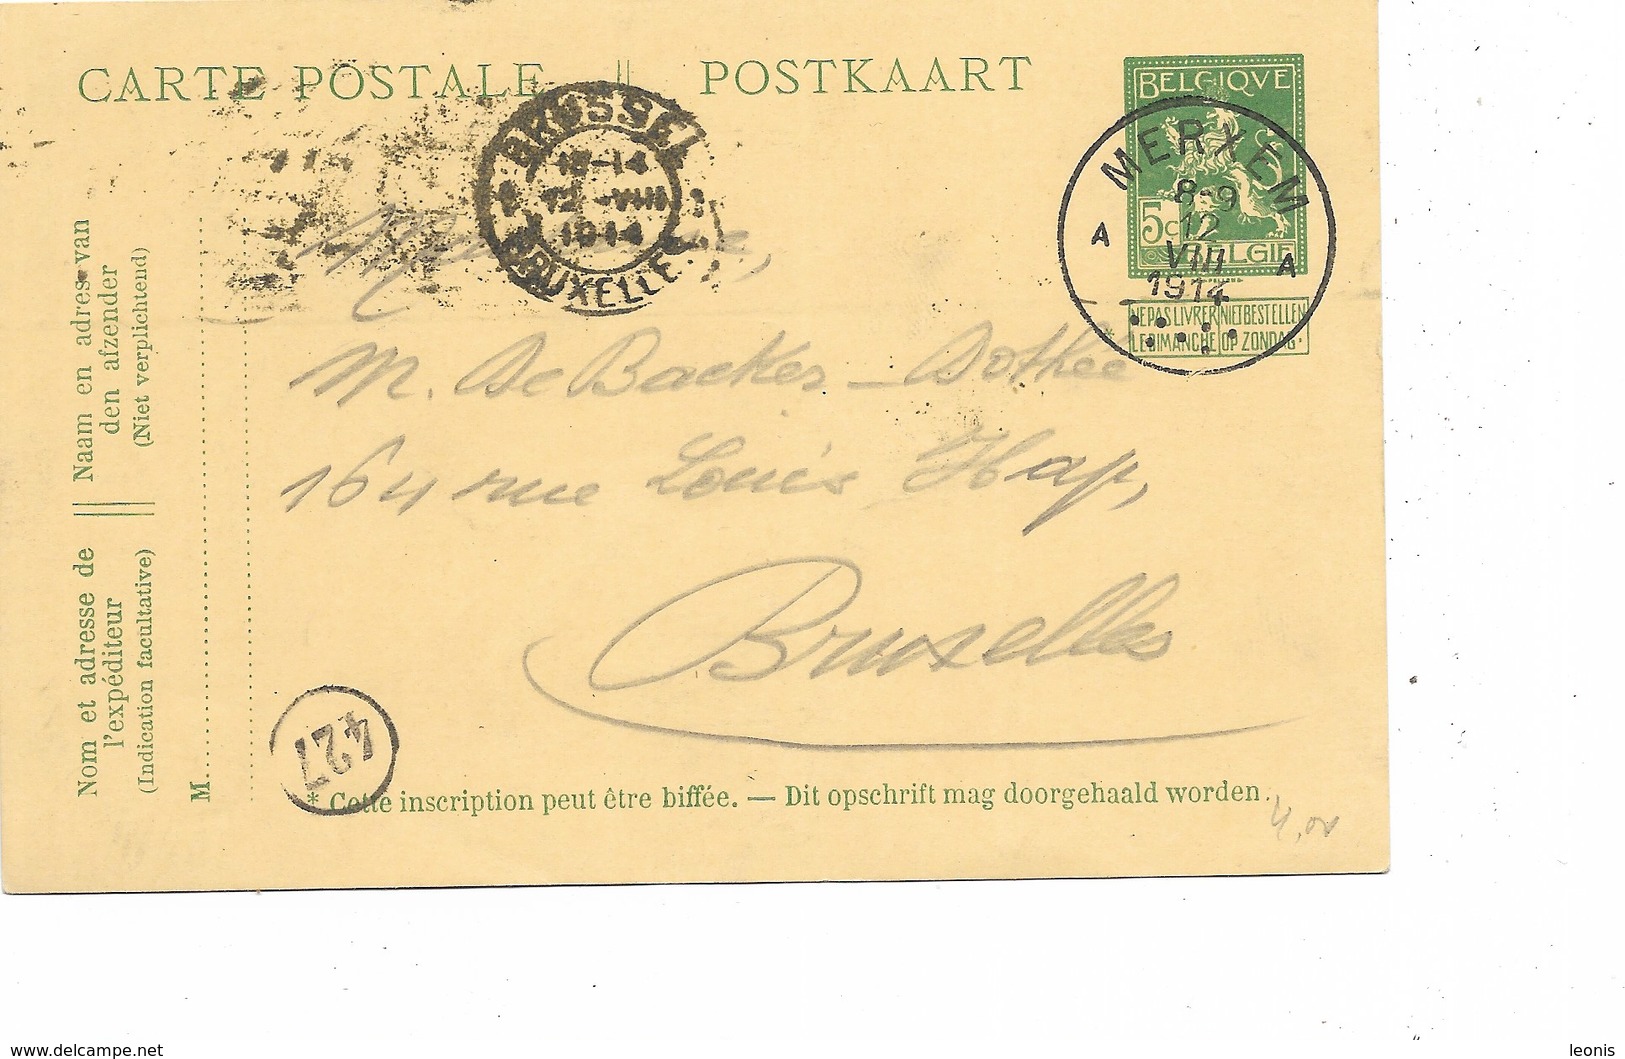 CARTE POSTALE || POSTKAART
BELGIQVE
5c
BELGIE
NE PAS LIVRER NIET BESTELLEN
* LE DIMANCHE OP ZONDAG.
MERXEM
8-9
12
VIII
1914
A A
BRUSSEL
12-VIII
1914
BRUXELLES
M. De Backer - Dothée
164 rue Louis Hap,
Bruxelles
Naam en adres van
den afzender
(Niet verplichtend)
Nom et adresse de
l'expéditeur
(Indication facultative)
M
427
* Cette inscription peut être biffée. — Dit opschrift mag doorgehaald worden.
www.delcampe.net
leonis